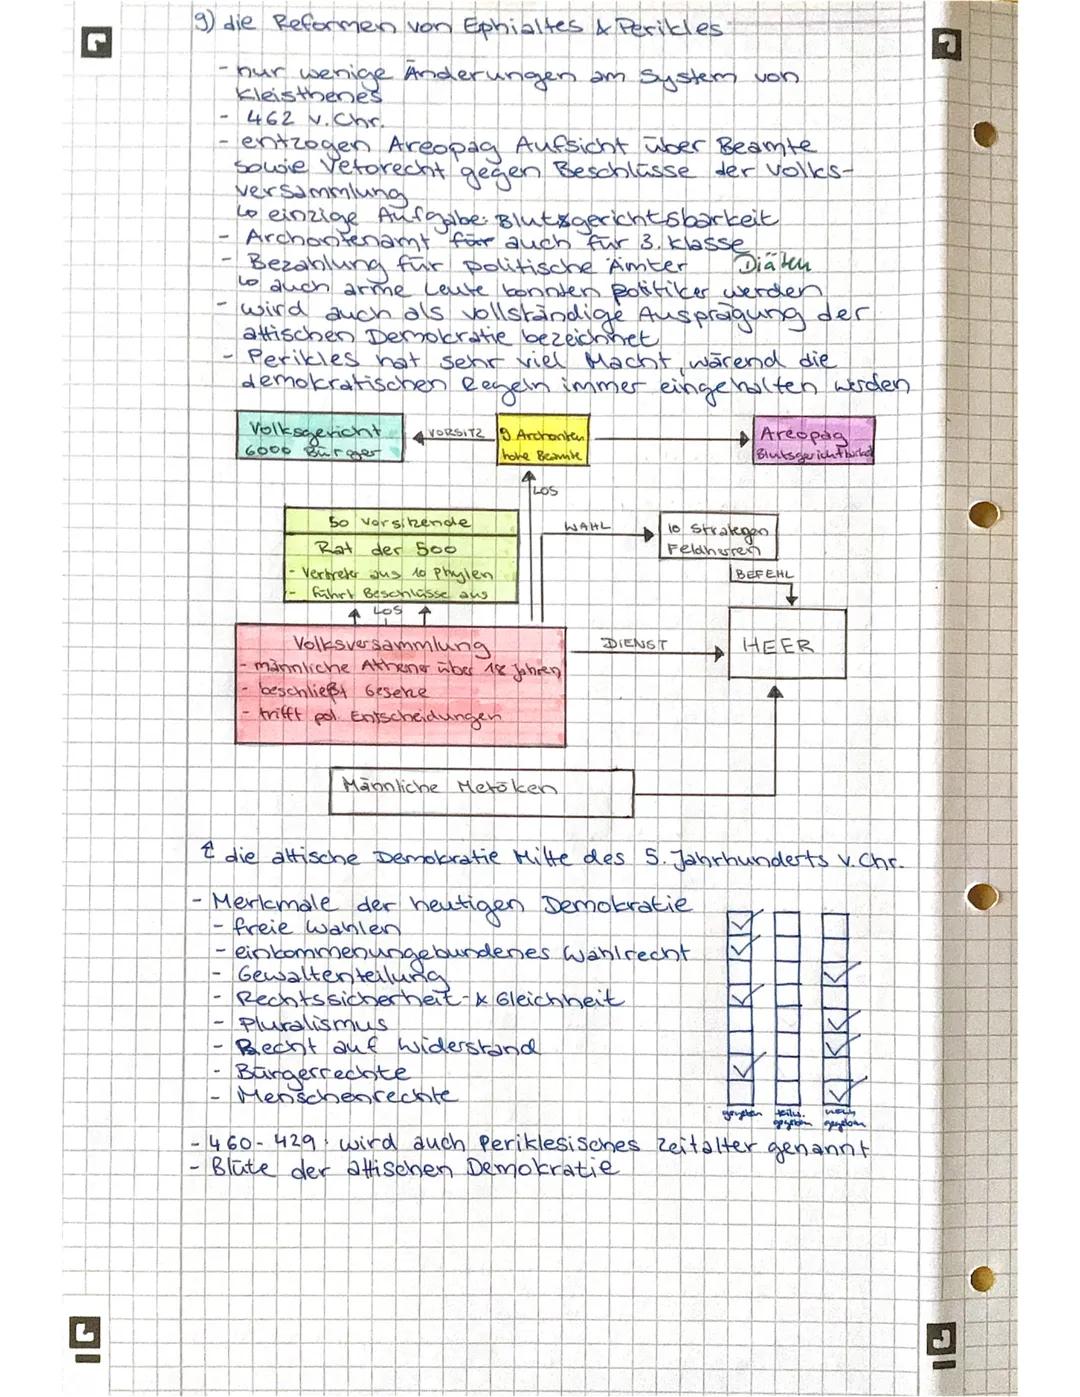 g) die Reformen von Ephialtes & Perikles
- nur wenige Änderungen am System von
Kleisthenes
- 462 v. Chr.
- entzogen Areopag Aufsicht über Beamte
sowie Vetorecht gegen Beschlüsse der Volks-
versammlung
↳ einzige Aufgabe: Blutsgerichtsbarkeit
- Archontenamt auch für 3. Klasse
- Bezahlung für politische Ämter Diäten
↳ auch arme Leute konnten Politiker werden
- wird auch als vollständige Ausprägung der
attischen Demokratie bezeichnet
- Perikles hat sehr viel Macht, wärend die
demokratischen Regeln immer eingehalten werden
Volksgericht
6000 Bürger
VORSITZ
9 Archonten
hohe Beamte
Areopag
Blutsgerichtbarkeit
LOS
50 Vorsitzende
Rat der 500
- Vertreter aus 10 Phylen
- führt Beschlüsse aus
WAHL
10 Strategen
Feldherren
BEFEHL
LOS
Volksversammlung
- männliche Athener über 18 Jahren
- beschließt Gesetze
- trifft pol. Entscheidungen
DIENST
HEER
Männliche Metöken
↑ die attische Demokratie Mitte des 5. Jahrhunderts v. Chr.
- Merkmale der heutigen Demokratie
- freie Wahlen
- einkommenungebundenes Wahlrecht
- Gewaltenteilung
- Rechtssicherheit- & Gleichheit
- Pluralismus
- Recht auf Widerstand
- Bürgerrechte
- Menschenrechte
gegeben
teilw. gegeben
gegeben
- 460-429: wird auch Periklesisches Zeitalter genannt
- Blüte der attischen Demokratie